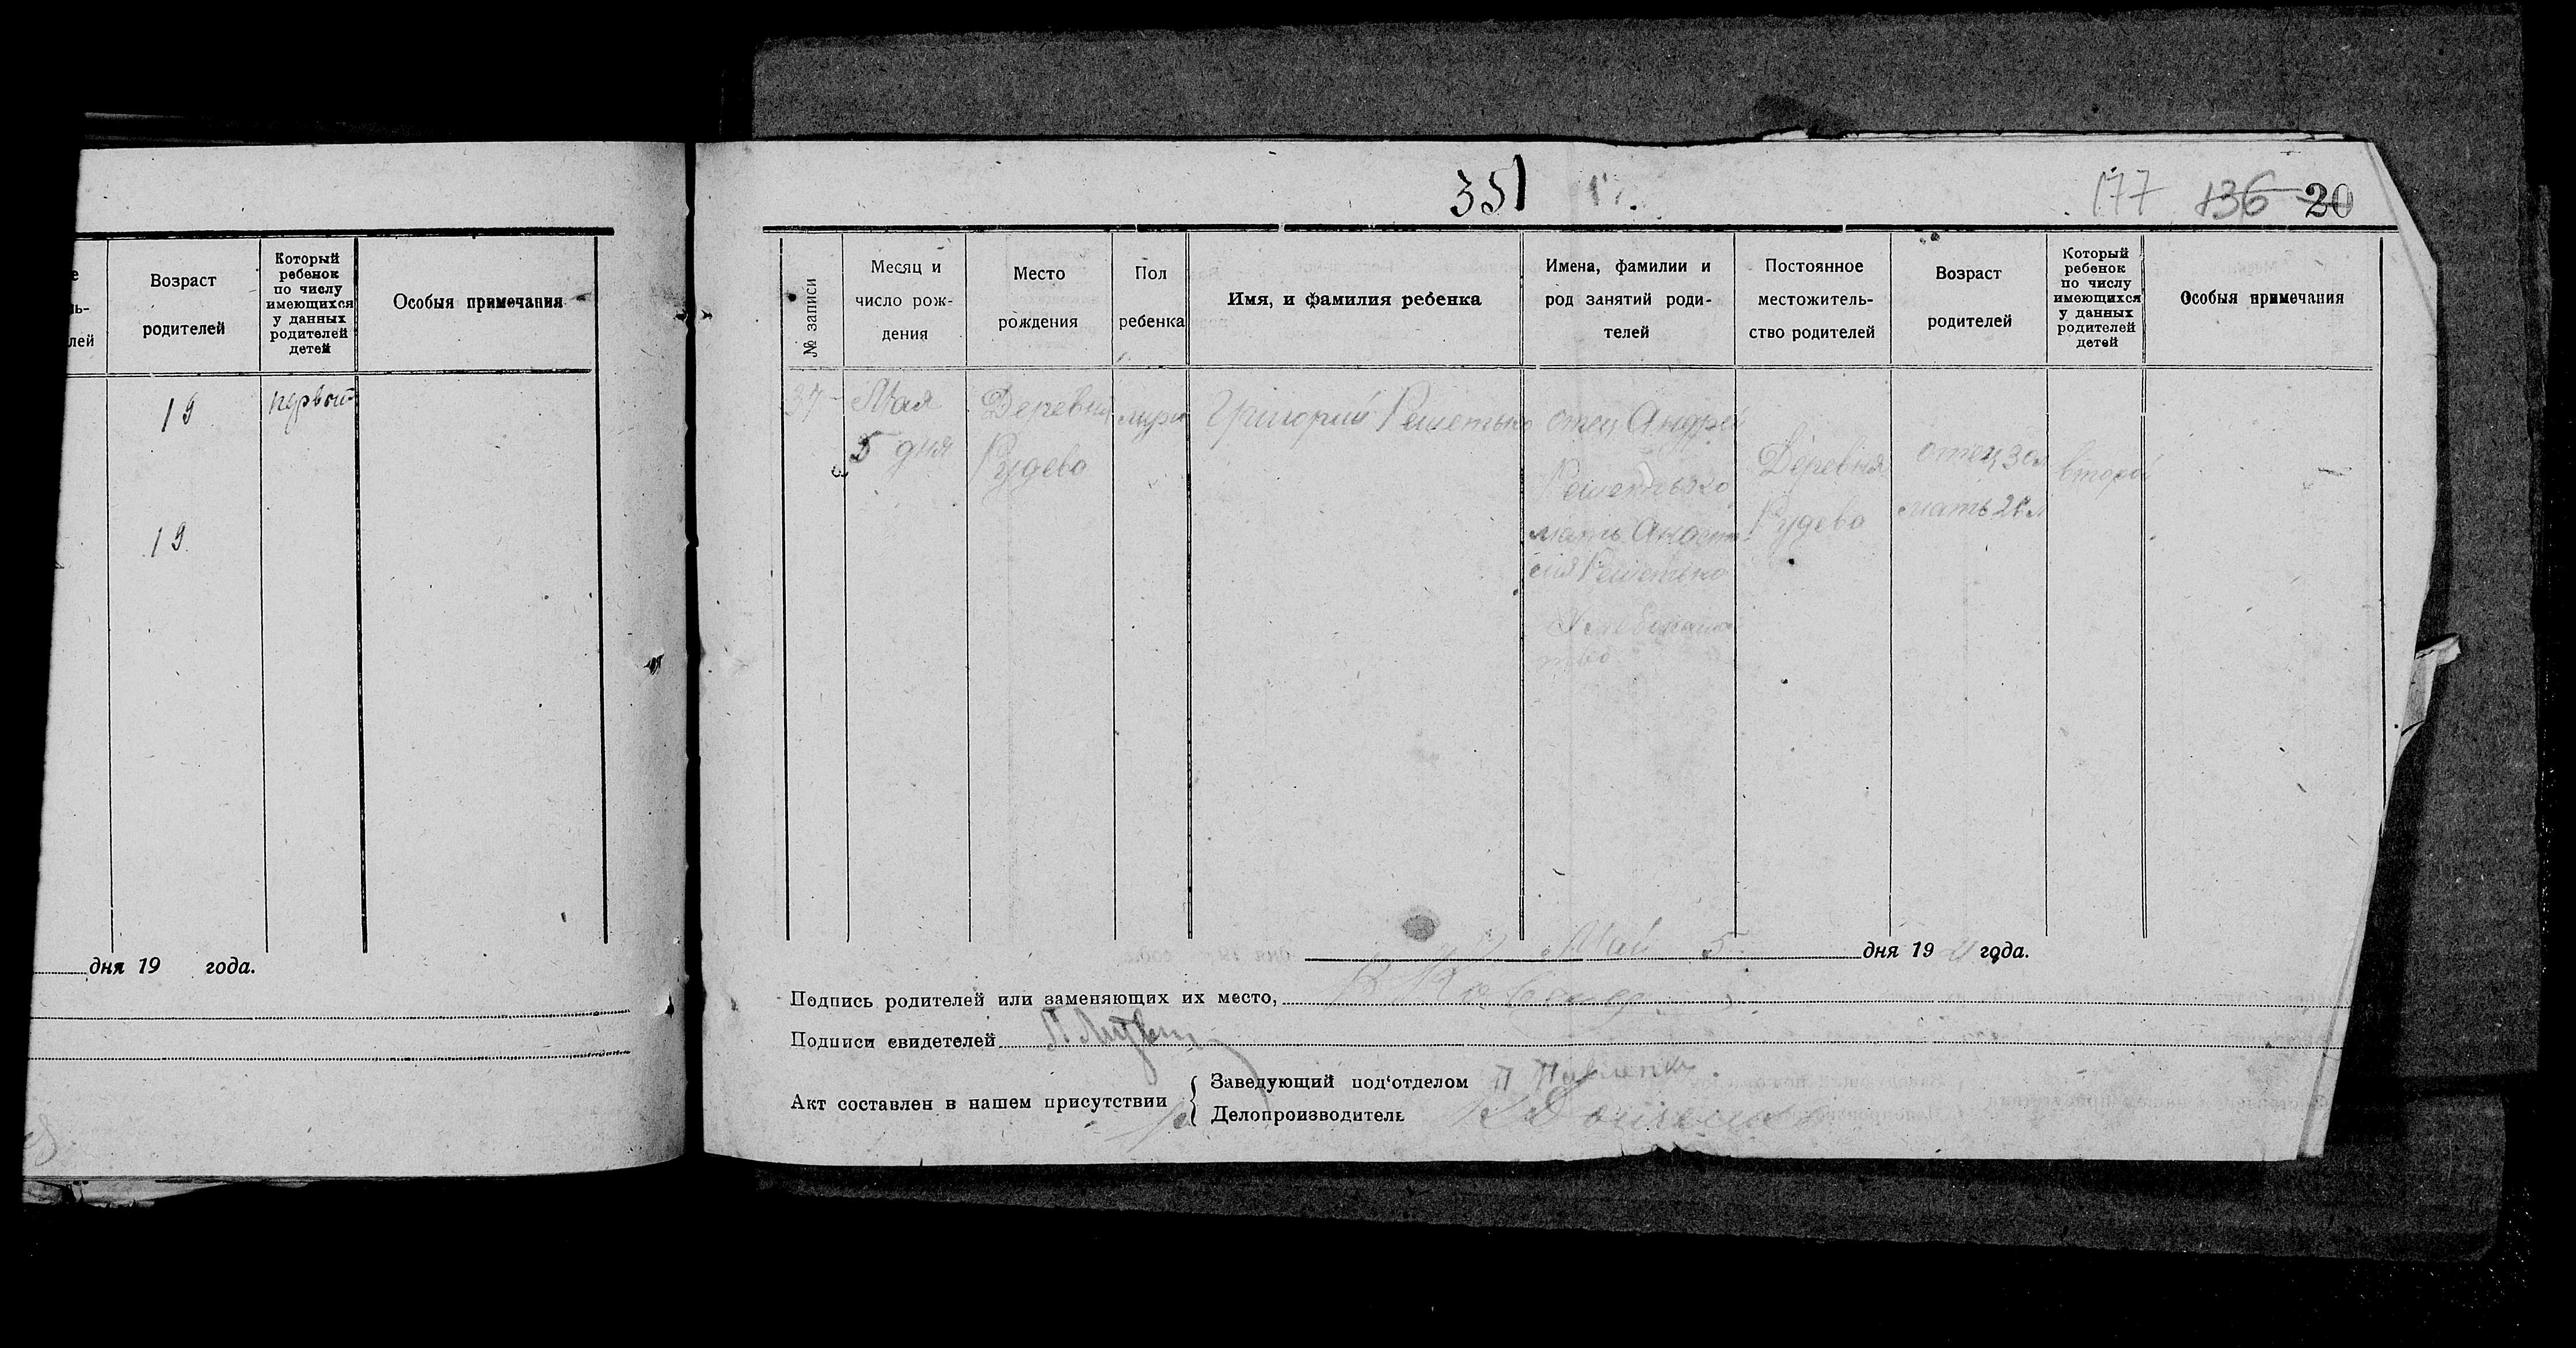 Возраст
родителей
Который
ребенок
по числу
имеющихся
у данных
родителей
детей
Особыя примечания
лей
19
первый
19
дня 19 года.
351
177 136 20
№ записи
Месяц и
число рож-
дения
Место
рождения
Пол
ребенка
Имя, и фамилия ребенка
Имена, фамилии и
род занятий роди-
телей
Постоянное
местожитель-
ство родителей
Возраст
родителей
Который
ребенок
по числу
имеющихся
у данных
родителей
детей
Особыя примечания
37
Мая
5 дня
Деревня
Рудево
муж
Григорий Решетько
отец Андрей
Решетько
мать Анаста
сия Решетько
Деревня
Рудево
отец 30л
мать
второй
Май 5 дня 19 года.
Подпись родителей или заменяющих их место,
Подписи свидетелей
Акт составлен в нашем присутствии
Заведующий под'отделом
Делопроизводитель